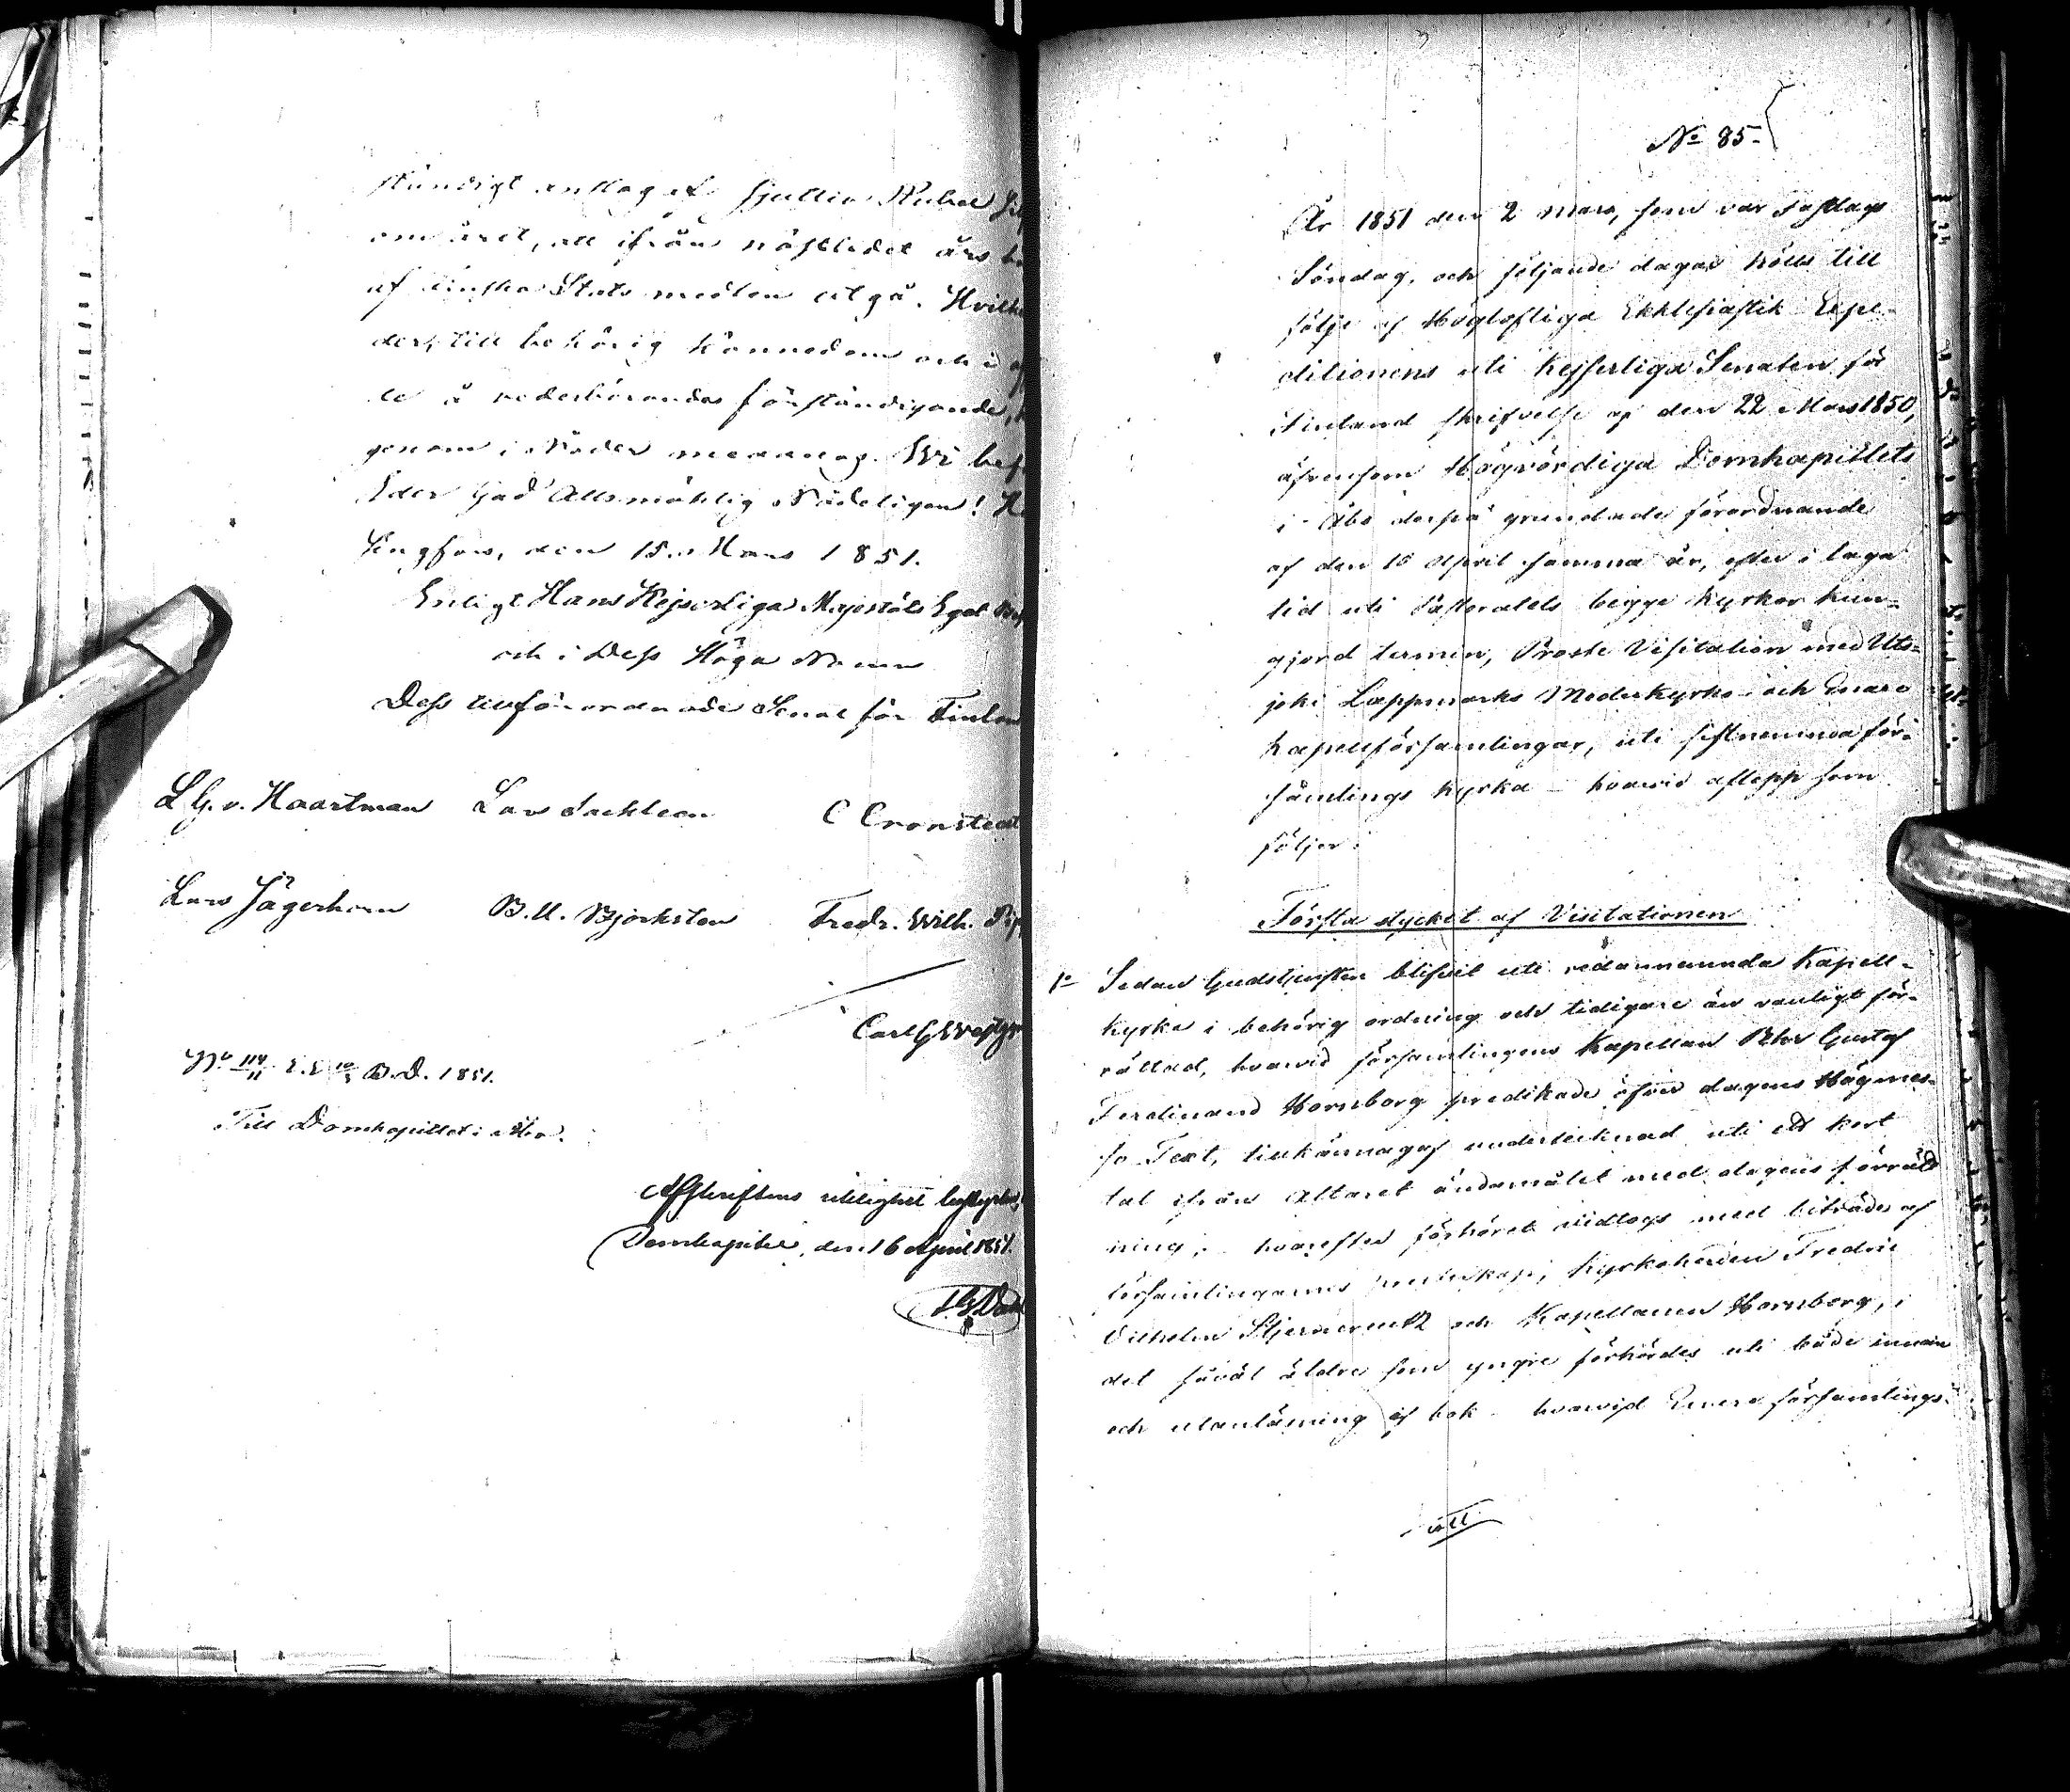 ständigt anslaget sjuttio Rubel
om året, att ifrån nästledet års
af Finska Statsmedlen utgå.
der, till behörig kännedom och i
de å vederbörandes förständigande,
genom i Nåder meddelas. Wi
Eder Gud Allsmäktig Nådeligen!
singfors, den 15 Mars 1851.
Enligt Hans Kejserliga Majestäts Eget
och i Dess Höga Namn
Dess tillförordnade Senat för
L G. v. Haartman Lars Sackleen C Cronstedt
Lars Jägerhorn B. U. Björksten Fredr. Wilh.
Carl G
No 114/11 E.E. 10/3 B.D. 1851.
Till Domkapitlet i Åbo.
Afskriftens riktighet bestyrkes,
Domkapitel, den 16 April 1851.
No 85.
År 1851 den 2 Mars, som var Fastlags
Söndag, och följande dagar hölls till
följe af Höglofliga Ekklesiastik Expe-
ditionens uti Kejserliga Senaten för
Finland skrifvelse af den 22 Mars 1850,
äfvensom Högvördiga Domkapitlets
i Åbo derpå grundade förordnande
af den 10 April samma år, efter i laga
tid uti Pastoratets begge kyrkor kun-
gjord termin, Prosts Visitation med Uts-
joki Lappmarks Moderkyrko- och Enare
kapellförsamlingar, uti sistnemnda för-
samlings kyrka – hvarvid aflopp som
följer:
Första stycket af Visitationen
1o Sedan Gudstjensten blifvit uti redannemnda Kapell-
kyrka i behörig ordning och tidigare än vanligt för-
rättad, hvarvid församlingens Kapellan Petter Gustaf
Ferdinand Hornborg predikade öfver dagens Högmes-
so Text, tillkännagaf undertecknad uti ett kort
tal ifrån Altaret ändamålet med dagens förrätt
ning; hvarefter förhöret vidtogs med biträde af
församlingarnes presterskap, Kyrkoherden Fredric
Vilhelm Stjerncreutz och Kapellanen Hornborg, i
det såväl äldre som yngre förhördes uti både innan
och utanläsning af bok – hvarvid Enare församlings-